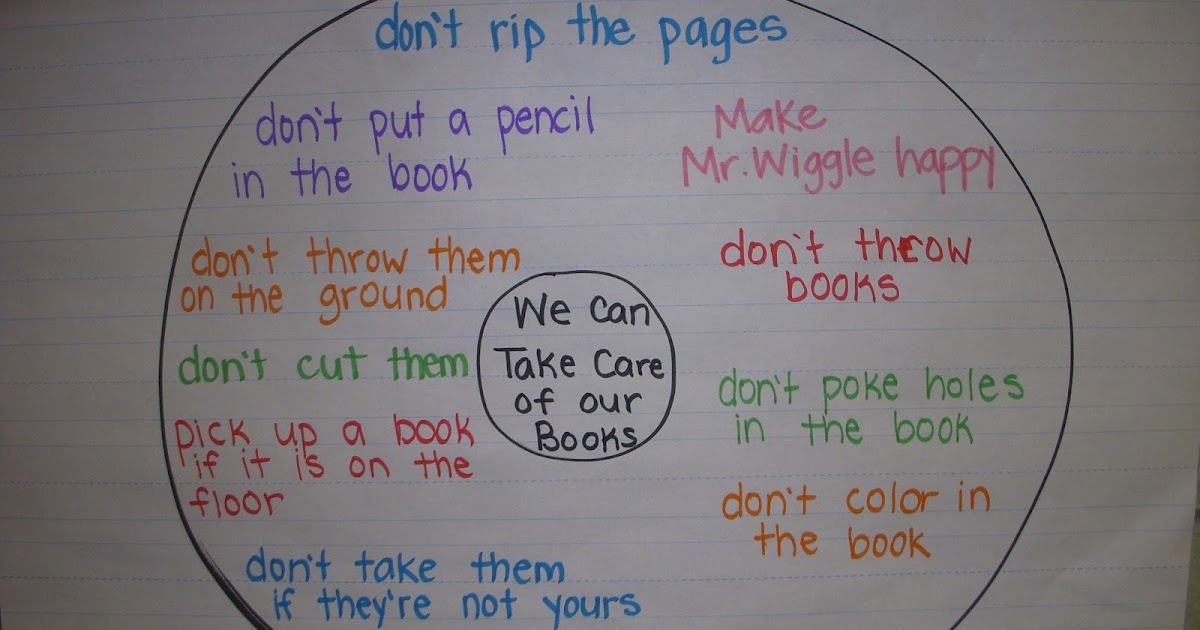 don't rip the pages
don't put a pencil
in the book
Make
Mr. Wiggle happy
don't throw them
on the ground
don't throw
books
We Can
Take Care
of our
Books
don't cut them
don't poke holes
in the book
pick up a book
if it is on the
floor
don't color in
the book
don't take them
if they're not yours